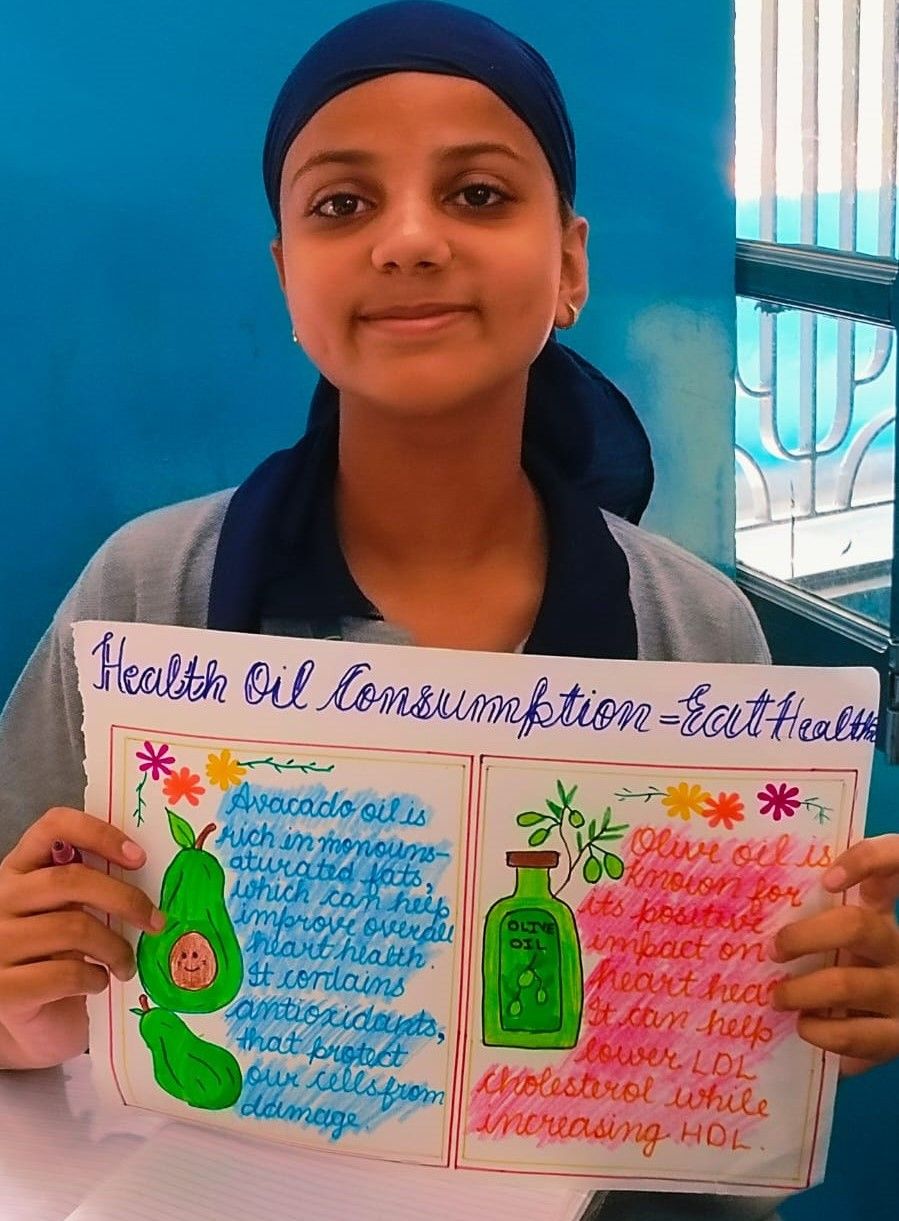 Health Oil Consumption = Eat Health
Avacado oil is
rich in monouns-
aturated fats,
which can help
improve overall
heart health.
It contains
antioxidants,
that protect
our cells from
damage.
OLIVE
OIL
Olive oil is
known for
its positive
impact on
heart hea
It can help
lower LDL
cholesterol while
increasing HDL.